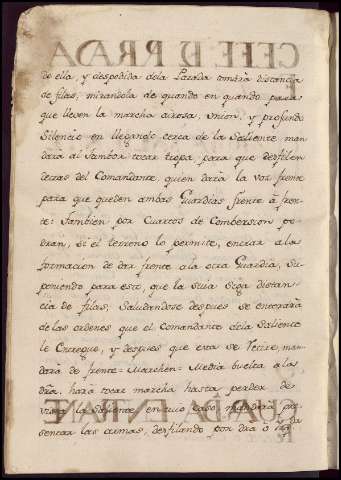 do ella, y despedida de la Parada tomará distancia
de filas, mirandola de quando en quando para
que lleven la marcha airosa, Union, y profundo
Silencio en llegando cerca de la Saliente man-
dará al Tambor tocar tropa para que desfilen
detras del Comandante, quien dará la voz frente
para que queden ambas Guardias frente á fren-
te: Tambien por Cuartos de Comberscion po-
dran, si el terreno lo permite, entrar a la
formacion de dar frente a la otra Guardia, su-
poniendo para esto, que la suia siga distan-
cia de filas, Saludandose despues se enterará
de las ordenes que el Comandante de la Saliente
le Entregue, y despues que esta se Retire, man-
dará de frente = Marchen = Media buelta a la
dra. hará tocar marcha hasta perder de
vista la Saliente en cuio caso, mandará pre-
sentar las armas, desfilando por dra ó izqda